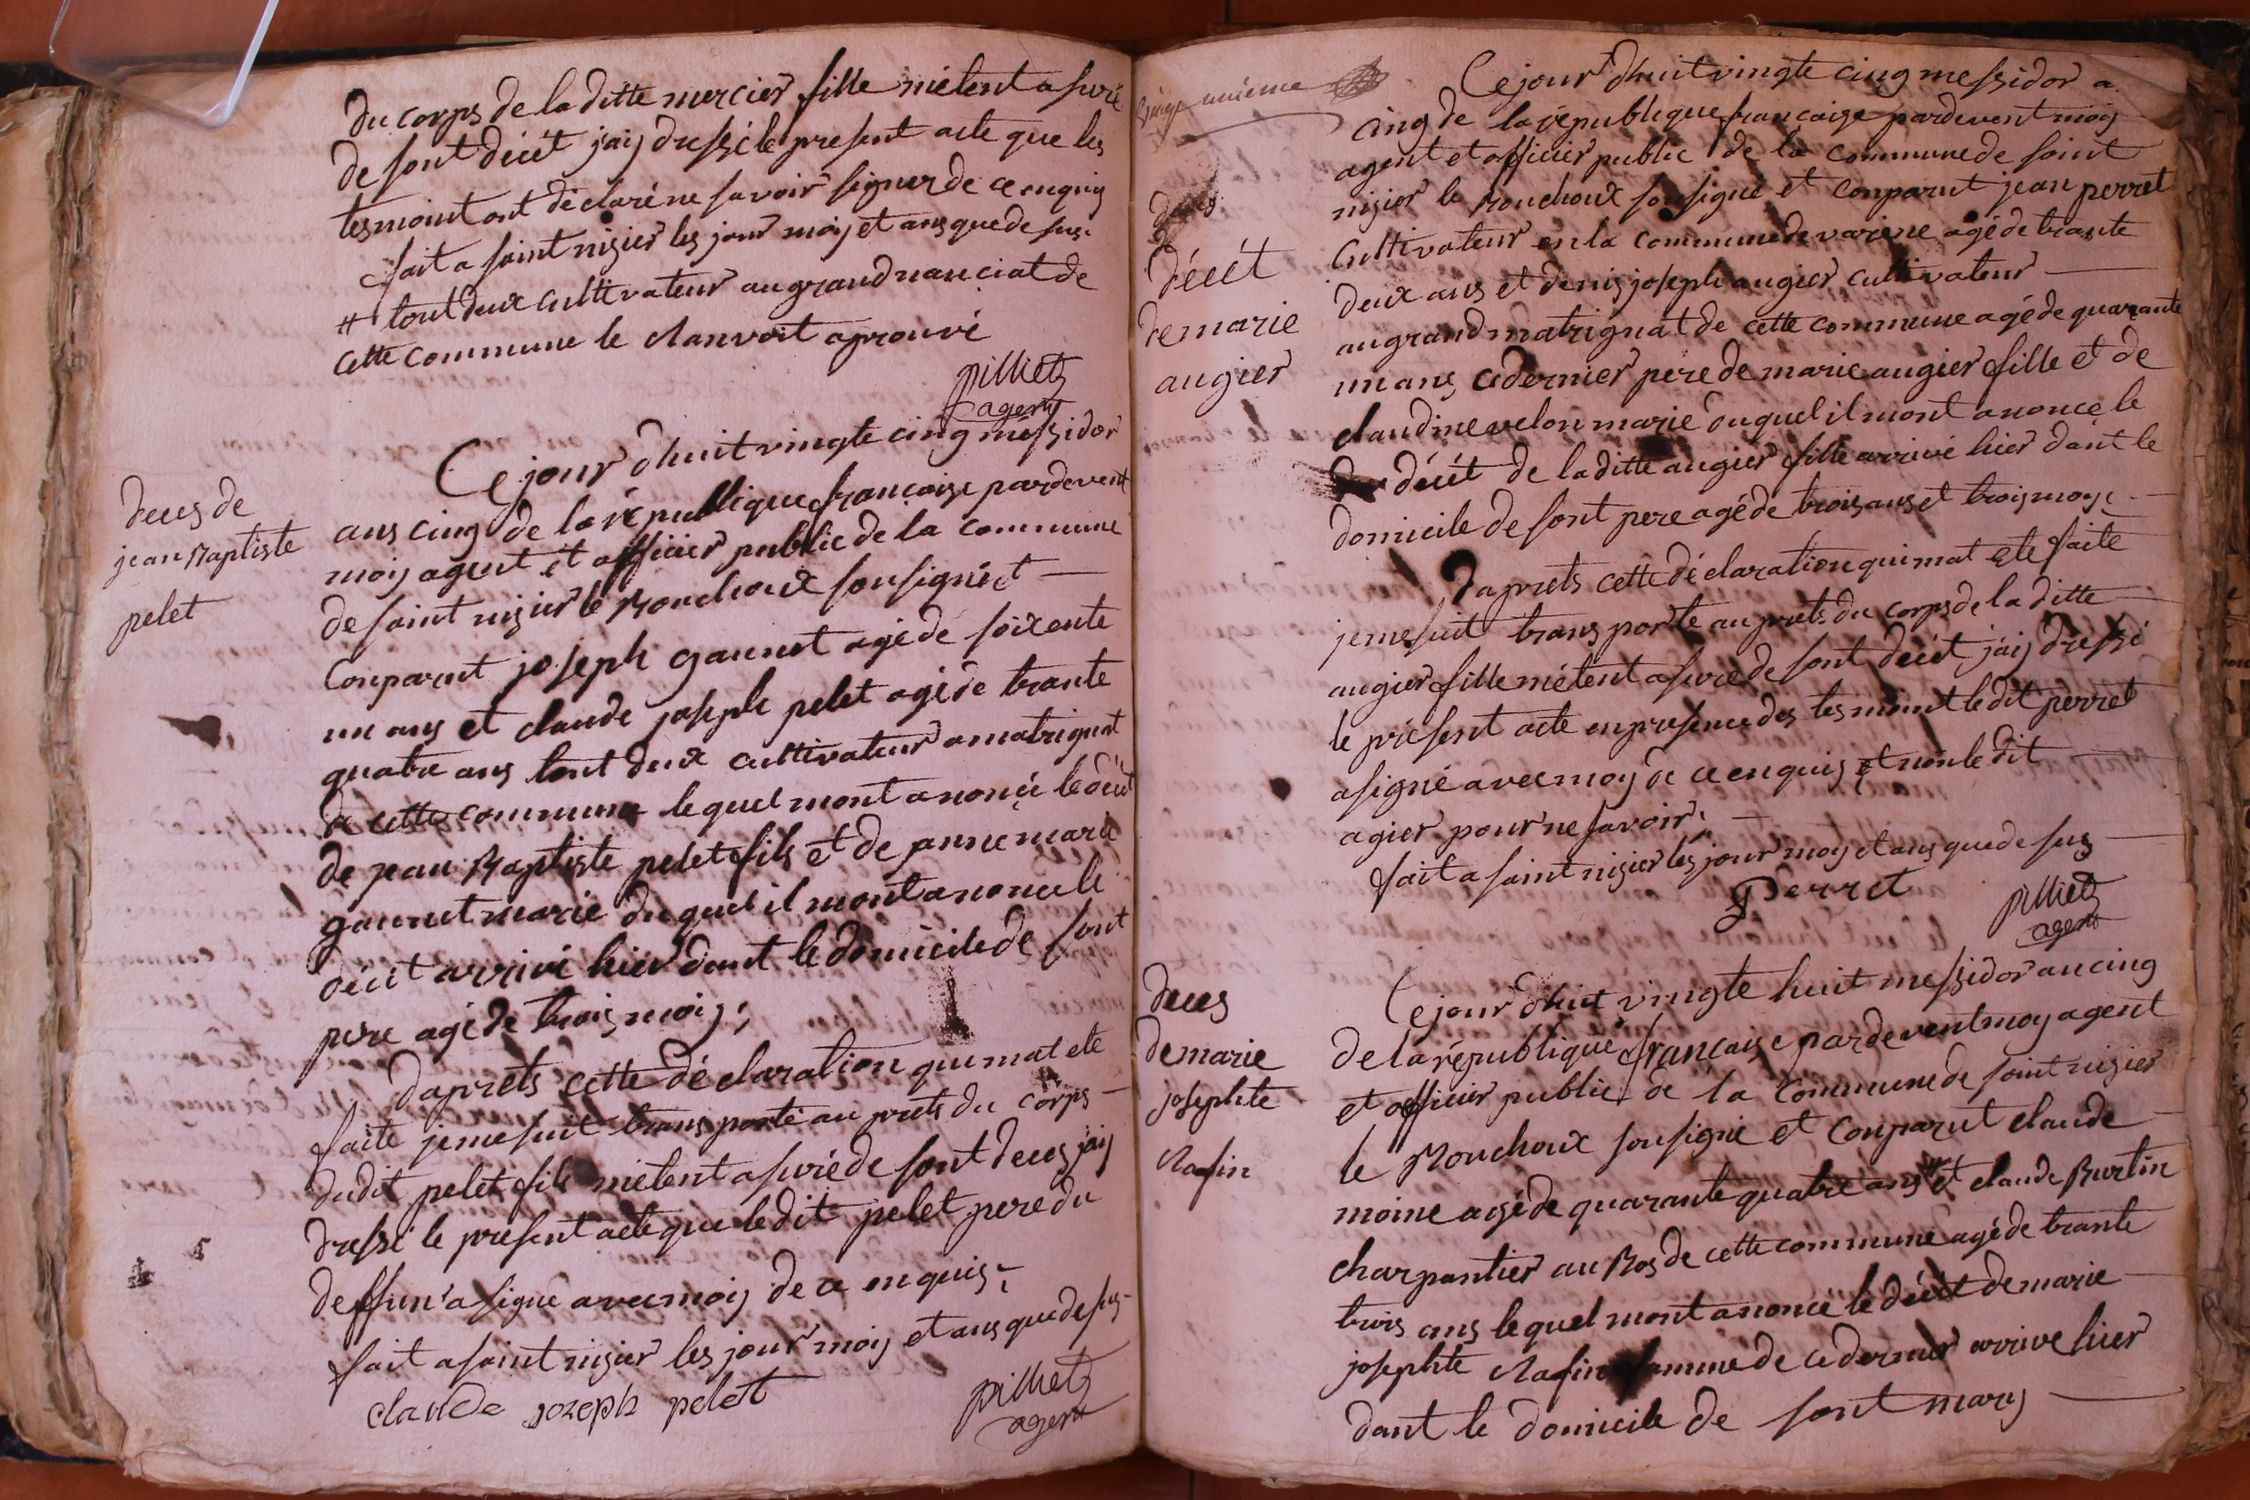 du corps de la ditte mercier fille mètent asuré
de sont décét jaij dressé le present acte que les
tesmoint ont déclaré ne savoir signer de ce enquij
fait a saint nizier les jour moij et ans que de sus.
# tout deux cultivateur au grand nanciat de
cette commune le chanvoit aprouvé
pilliet
agent
Ce jour dhuit vingte cinq messidor
deces de
jean Baptiste
pelet
ans cinq de la république francoise pardevent
moij agent et officier public de la commune
de saint nizier le Bouchoux sousigné et
Conparut joseph gaunet agé de soixente
un ans et claude joseph pelet agé de trante
quatre ans tout deux cultivateur a matrignat
de cette commune lequel mont anoncé le décét
de jean Baptiste pelet fils et de janne marie
gaunet marié duquel il mont anoncé le
décét arrivé hier dant le domicile de sont
pere agé de trois mois;
daprets cette déclaration qui mat ete
faite je me suit trans porté au prets du corps
dudit pelet fils mètent asuré de sont deces jaij
dressé le present acte que ledit pelet pere du
deffun a signé avec moij de ce enquis;
fait a saint nizier les jour moij et ans que de sus
claude jozeph pelet
pilliet
agent
vingt unieme
Ce jour dhuit vingte cinq messidor a
cinq de la république francoise pardevent moij
agent et officier public de la commune de saint
nizier le Bouchoux sousigné et conparut jean perret
décét
de marie
augier
Cultivateur en la commune de varene agé de trante
deux ans et denis joseph augier cultivateur
au grand matrignat de cette commune agé de quarante
un ans ce dernier pere de marie augier fille et de
claudine velon marié duquel il mont anoncé le
décét de la ditte augier fille arrivé hier dant le
domicile de sont pere agé de trois ans et trois moij
Daprets cette déclaration qui mat ete faite
je me suit trans porté au prets du corps de la ditte
augier fille mètent asuré de sont décét jaij dressé
le présent acte en presence des tesmoint ledit perret
a signé avec moij de ce enquij et non ledit
agier pour ne savoir;
fait a saint nizier les jour moij et ans que de sus
Perret
pilliet
agent
deces
de marie
josephte
Rafin
Ce jour dhuit vingte huit messidor an cinq
de la république francaise pardevent moij agent
et officier public de la commune de saint nizier
le Bouchoux sousigné et conparut claude
moine agé de quarante quatre ans et claude Burtin
charpantier au Bos de cette commune agé de trante
trois ans lequel mont anoncé le décét de marie
josephte Rafin famme de ce dernier arrivé hier
dant le domicile de sont marij